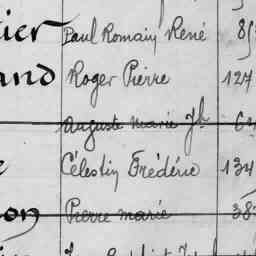 ier Paul Romain René 85
and Roger Pierre 127
Auguste Marie Jh 6
e Célestin Frédéric 134
on Pierre Marie 38